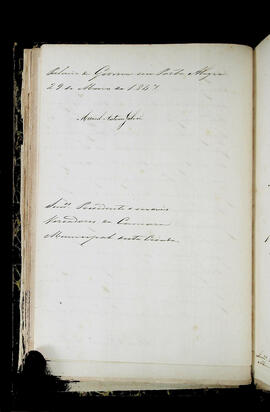 Palacio do Governo em Porto Alegre
29 de Março de 1847
Manoel Antonio Galvão
Snrs. Presidente e mais
Vereadores da Camara
Municipal desta Cidade